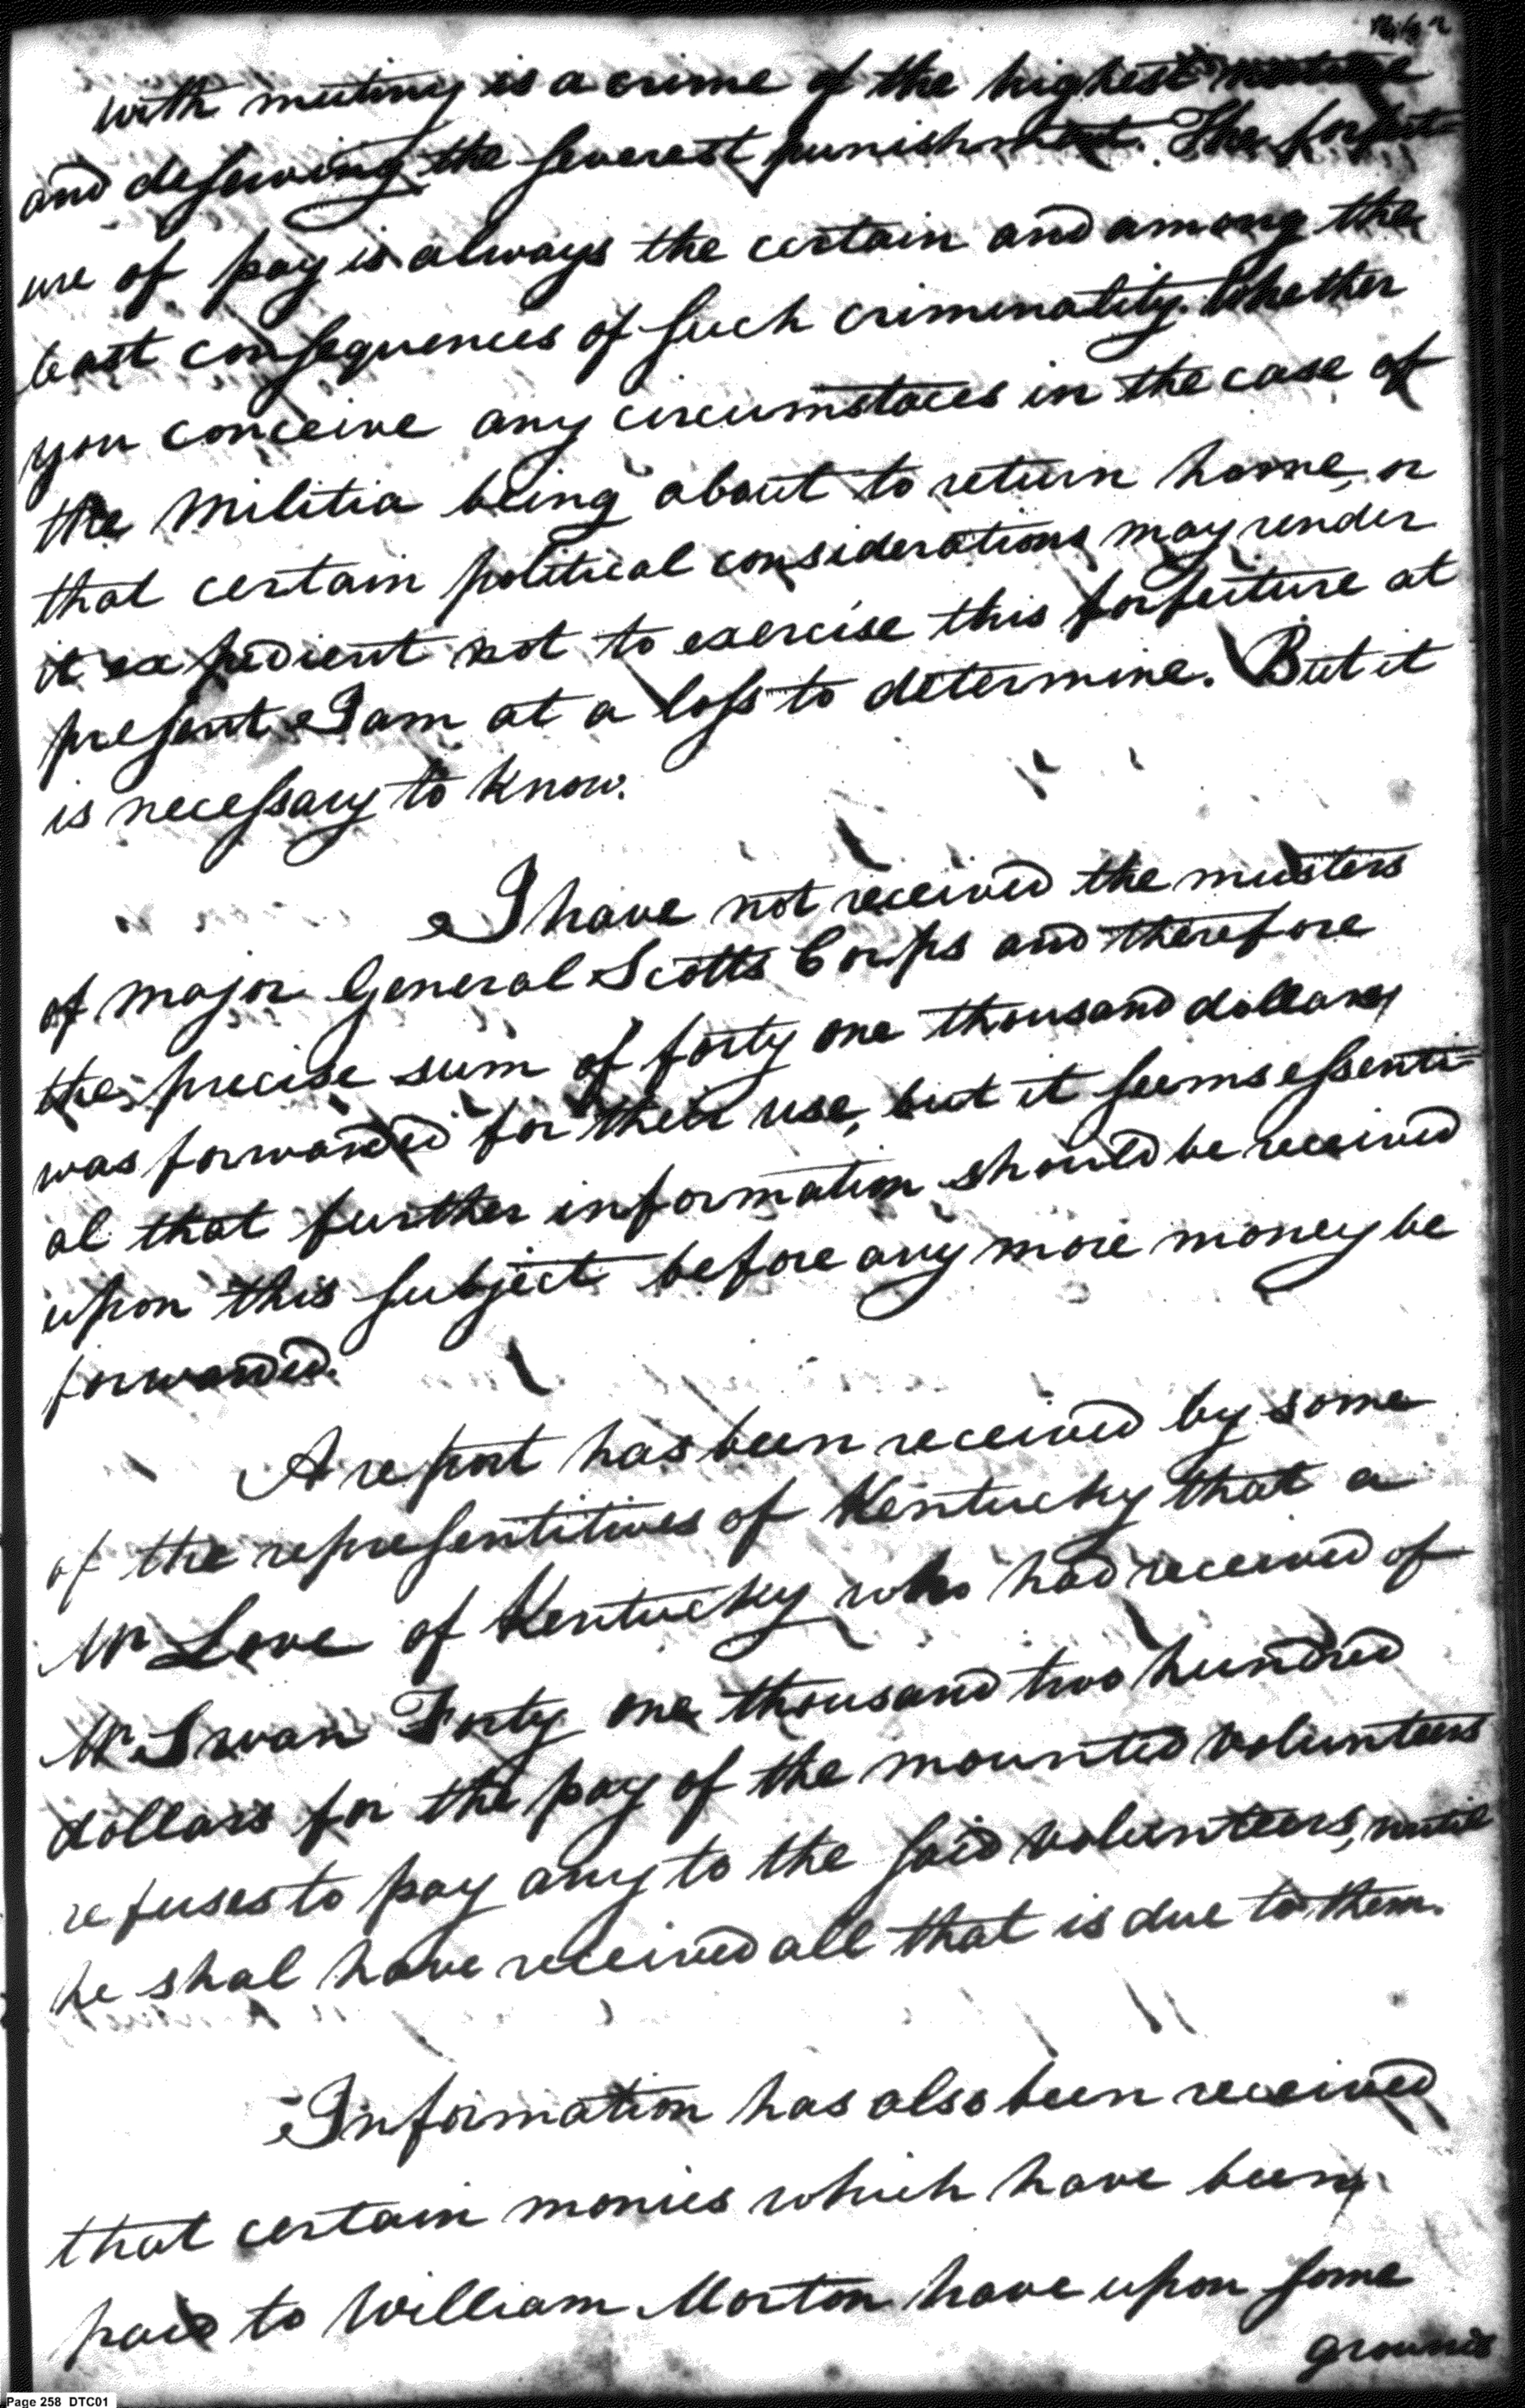 with mutiny is a crime of the highest nature
and deserving the severest punishment. The forfeit
ure of pay is always the certain and among the
least consequences of such criminality. Whether
you conceive any circumstaces in the case of
the Militia being about to return home, or
that certain political considerations may render
it expedient not to exercise this forfeiture at
present I am at a loss to determine. But it
is necessary to know.
I have not received the musters
of major General Scotts Corps and therefore
the precise sum of forty one thousand dollars
was forwarded for their use, but it seems essenti=
al that further information should be received
upon this subject before any more money be
forwarded.
A report has been received by some
of the representitives of Kentucky that a
Mr Love of Kentucky who had received of
Mr Swan Forty one thousand two hundred
dollars for the pay of the mounted volunteers
refuses to pay any to the said volunteers, until
he shal have received all that is due to them.
Information has also been received
that certain monies which have been
paid to William Morton have upon some
grounds
Page 258 DTC01